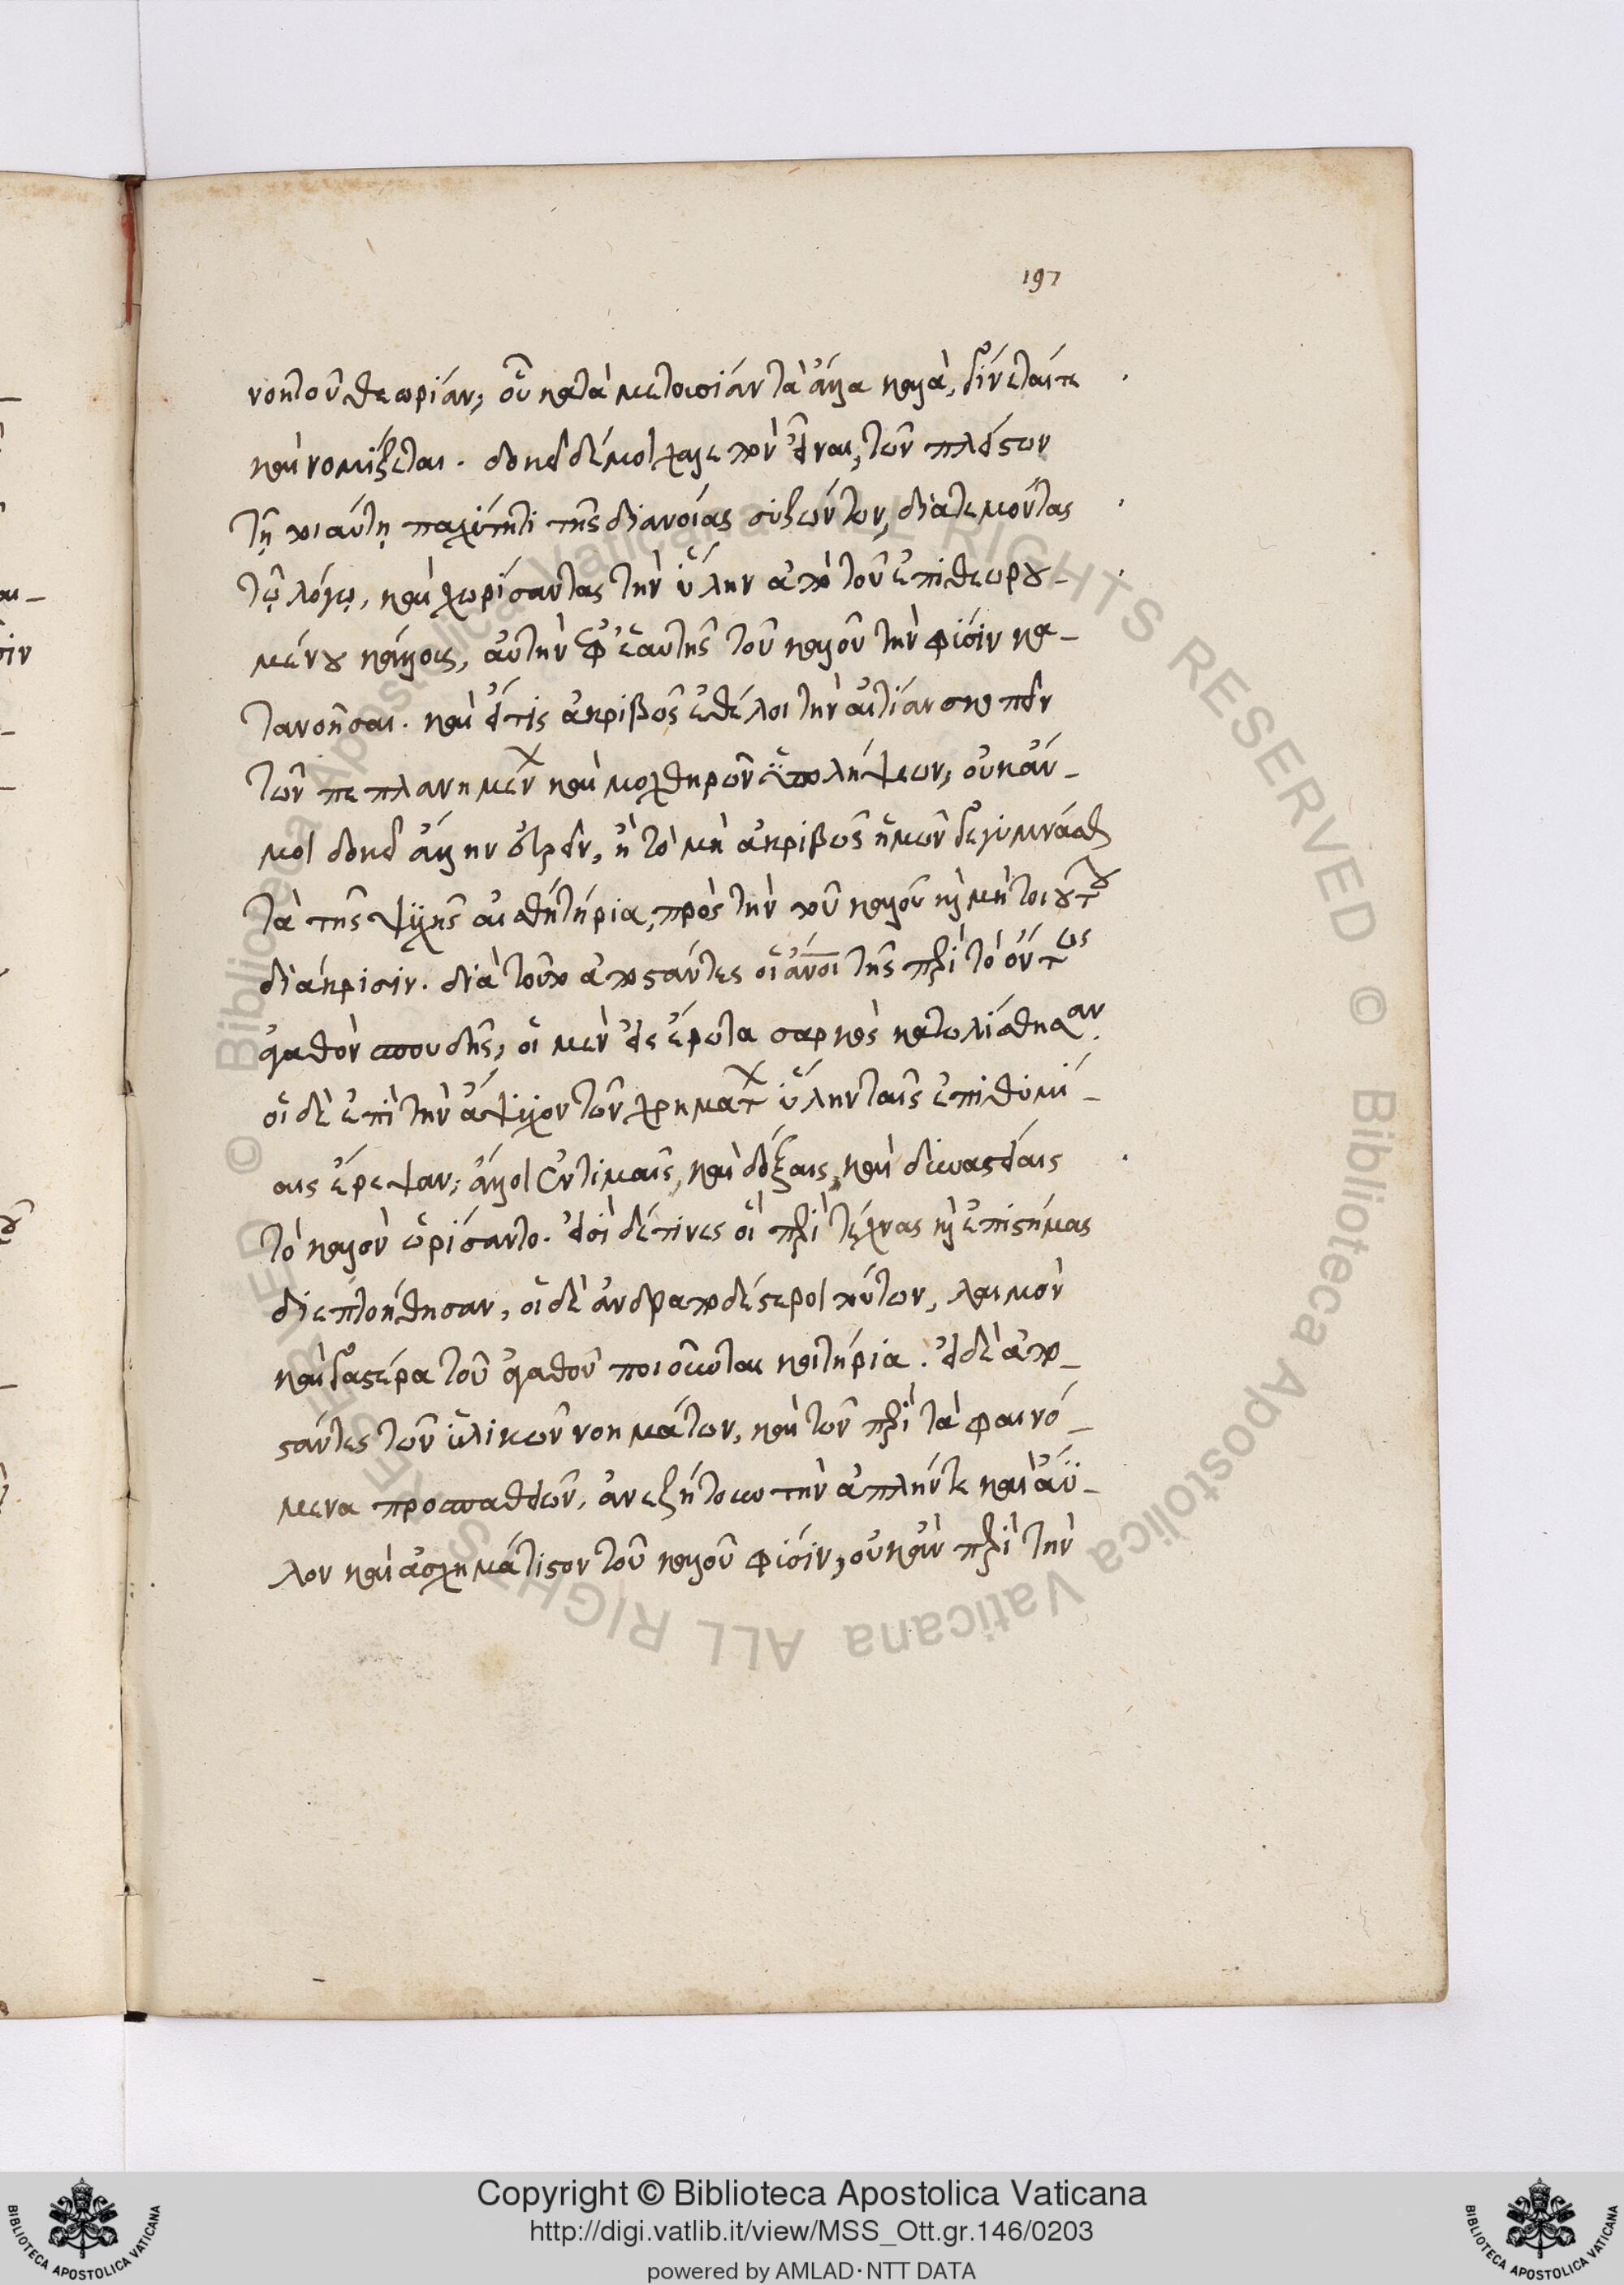 197
νοητοῦ θεωρίαν, οὗ κατὰ μετουσίαν τὰ ἄλλα καλὰ, γίνεταί τε
καὶ νομίζεται. δοκεῖ δέ μοι χαλεπὸν εἶναι, τῶν πλείστων
τῇ τοιαύτῃ παχύτητι τῆς διανοίας συζώντων, διατεμόντας
τῷ λόγῳ, καὶ χωρίσαντας τὴν ὕλην ἀπὸ τοῦ ἐπιθεωρου-
μένου κάλλους, αὐτὴν ἐφ' ἑαυτῆς τοῦ καλοῦ τὴν φύσιν κα-
τανοῆσαι. καὶ εἴ τις ἀκριβῶς ἐθέλοι τὴν αἰτίαν σκοπεῖν
τῶν πεπλανημένων καὶ μοχθηρῶν ὑπολήψεων, οὐκ ἄν
μοι δοκεῖ ἄλλην εὑρεῖν, ἢ τὸ μὴ ἀκριβῶς ἡμῶν γεγυμνάσθαι
τὰ τῆς ψυχῆς αἰσθητήρια, πρὸς τὴν τοῦ καλοῦ καὶ μὴ τοιούτου
διάκρισιν. διὰ τοῦτο ἀποστάντες οἱ ἄνοι τῆς περὶ τὸ ὄντως
ἀγαθὸν σπουδῆς, οἱ μὲν εἰς ἔρωτα σαρκὸς κατωλίσθησαν.
οἱ δὲ ἐπὶ τὴν ἄψυχον τῶν χρημάτων ὕλην ταῖς ἐπιθυμί-
αις ἔρεψαν, ἄλλοι ἐν τιμαῖς, καὶ δόξαις, καὶ δυναστείαις
τὸ καλὸν ὡρίσαντο. εἰσὶ δέ τινες οἳ περὶ τέχνας καὶ ἐπιστήμας
διεπτοήθησαν, οἱ δὲ ἀνδραποδέστεροι τούτων, λαιμὸν
καὶ γαστέρα τοῦ ἀγαθοῦ ποιοῦνται κριτήρια. εἰ δὲ ἀπο-
στάντες τῶν ὑλικῶν νοημάτων, καὶ τῶν περὶ τὰ φαινό-
μενα προσπαθειῶν, ἀνεζήτουν τὴν ἁπλῆν τε καὶ ἄϋ-
λον καὶ ἀσχημάτιστον τοῦ καλοῦ φύσιν, οὐκ ἂν περὶ τὴν
© Biblioteca Apostolica Vaticana ALL RIGHTS RESERVED © Biblioteca Apostolica Vaticana ALL RIGHTS RESERVED
Copyright © Biblioteca Apostolica Vaticana
http://digi.vatlib.it/view/MSS_Ott.gr.146/0203
powered by AMLAD·NTT DATA
BIBLIOTECA APOSTOLICA VATICANA
BIBLIOTECA APOSTOLICA VATICANA